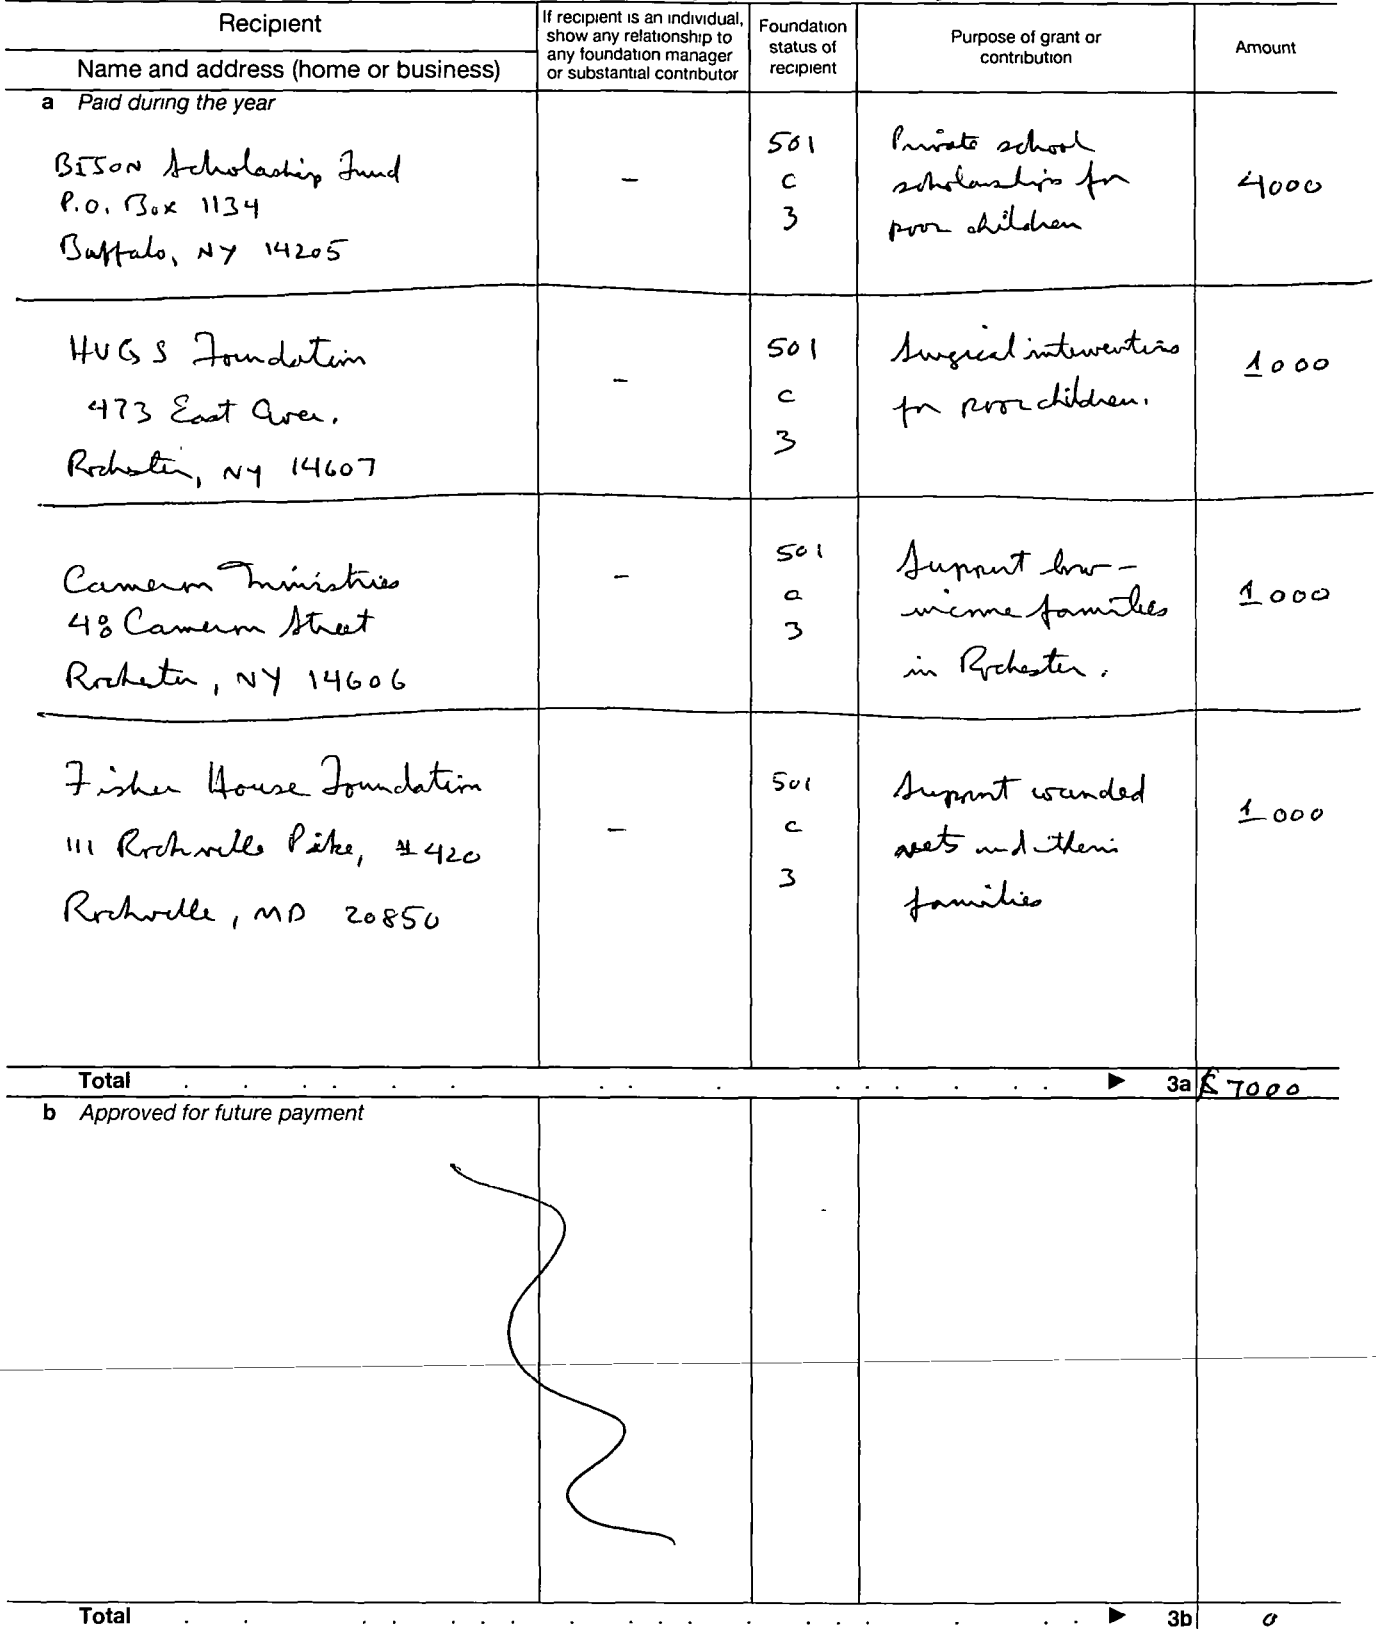 Recipient
Name and address (home or business)
If recipient is an individual,
show any relationship to
any foundation manager
or substantial contributor
Foundation
status of
recipient
Purpose of grant or
contribution
Amount
a Paid during the year
BISON Scholarship Fund
P.O. Box 1134
Buffalo, NY 14205
–
501
c
3
Private school
scholarships for
poor children
4000
HUGS Foundation
473 East Ave.
Rochester, NY 14607
–
501
c
3
Surgical interventions
for poor children.
1000
Cameron Ministries
48 Cameron Street
Rochester, NY 14606
–
501
c
3
Support low-
income families
in Rochester.
1000
Fisher House Foundation
111 Rockville Pike, #420
Rockville, MD 20850
–
501
c
3
Support wounded
vets and their
families
1000
Total . . . . . . . . . . . . . . . ▶ 3a $7000
b Approved for future payment
Total . . . . . . . . . . . . . . . ▶ 3b 0